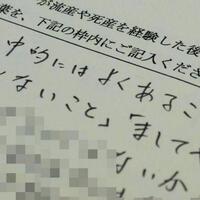 が流産や死産を経験した後
葉を、下記の枠内にご記入くださ
中的にはよくあるこ
ないこと」「まして
ないか